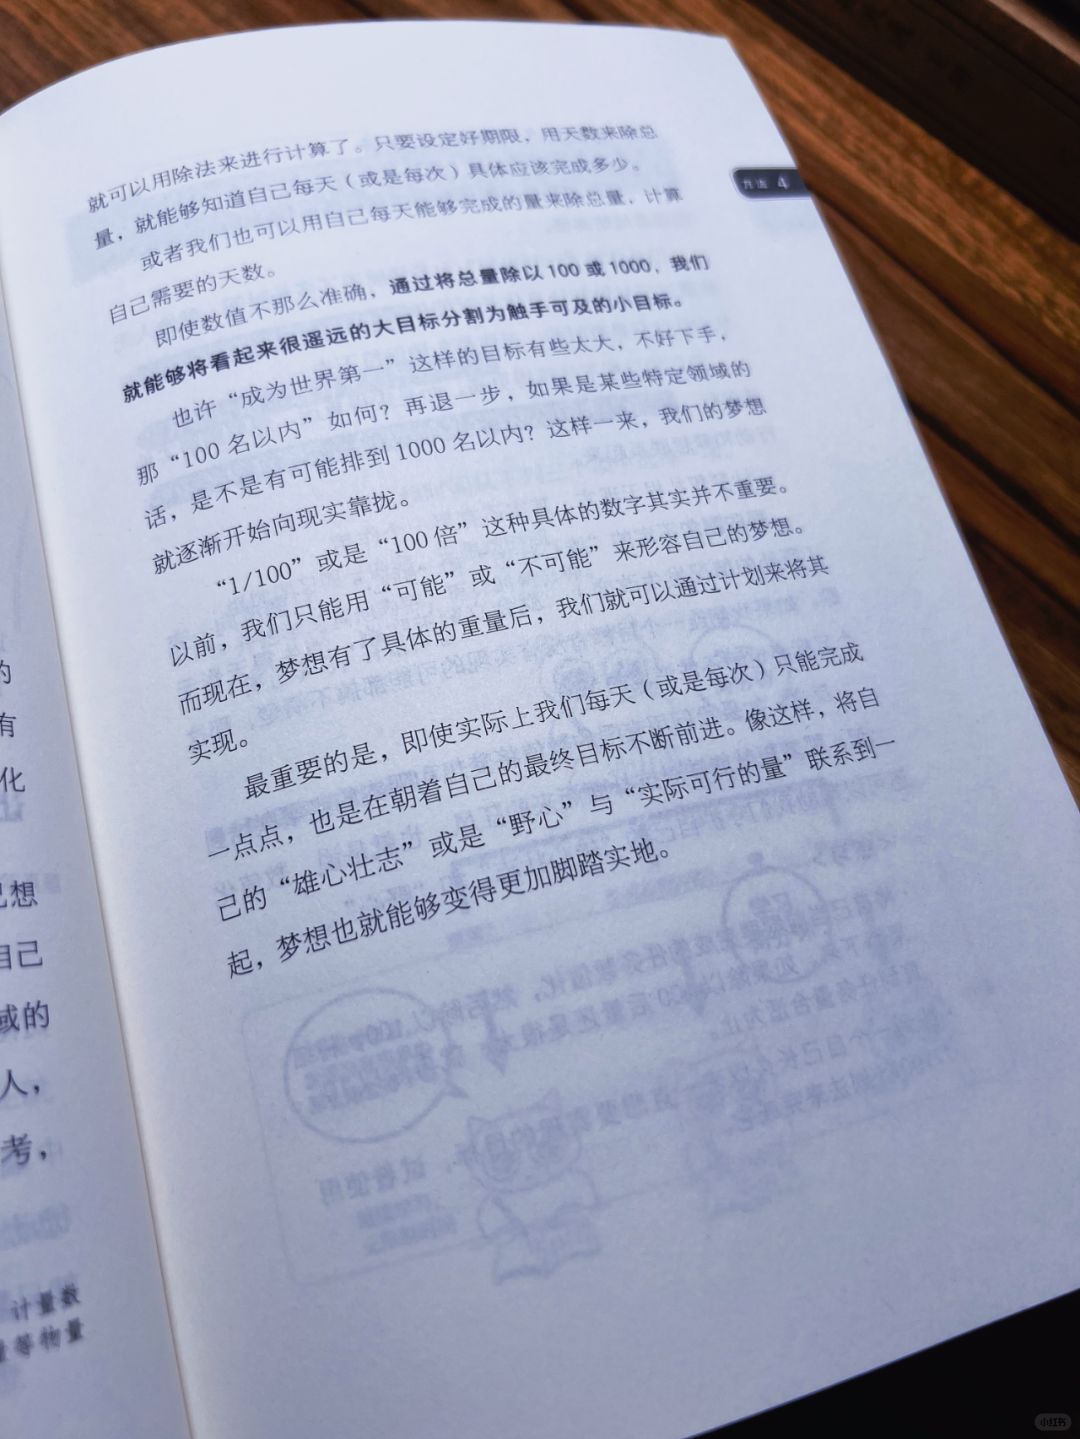 就可以用除法来进行计算了。只要设定好期限，用天数来除总
量，就能够知道自己每天（或是每次）具体应该完成多少。
或者我们也可以用自己每天能够完成的量来除总量，计算
自己需要的天数。
即使数值不那么准确，通过将总量除以100或1000，我们
就能够将看起来很遥远的大目标分割为触手可及的小目标。
也许“成为世界第一”这样的目标有些太大，不好下手，
那“100名以内”如何？再退一步，如果是某些特定领域的
话，是不是有可能排到1000名以内？这样一来，我们的梦想
就逐渐开始向现实靠拢。
“1/100”或是“100倍”这种具体的数字其实并不重要。
以前，我们只能用“可能”或“不可能”来形容自己的梦想。
而现在，梦想有了具体的重量后，我们就可以通过计划来将其
实现。
最重要的是，即使实际上我们每天（或是每次）只能完成
一点点，也是在朝着自己的最终目标不断前进。像这样，将自
己的“雄心壮志”或是“野心”与“实际可行的量”联系到一
起，梦想也就能够变得更加脚踏实地。
方法 4
的
有
化
己想
自己
域的
人，
考，
计量数
量等物量
小红书